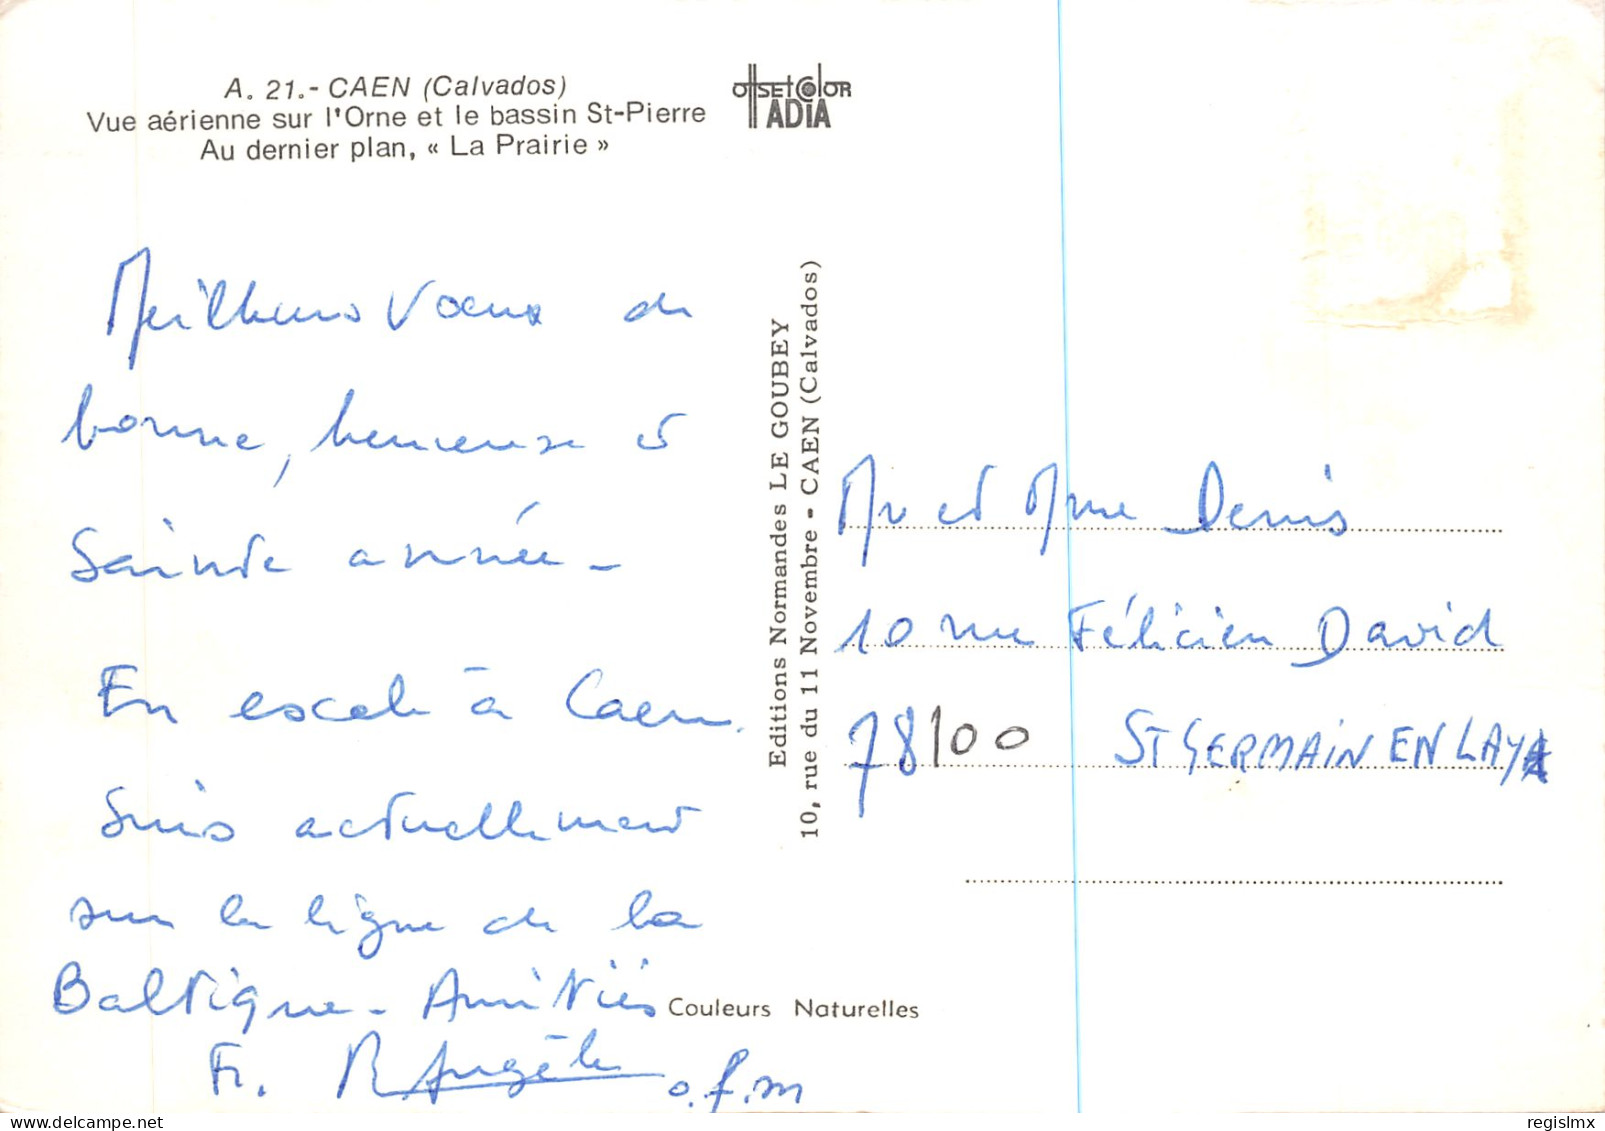 A. 21.- CAEN (Calvados)
Vue aérienne sur l'Orne et le bassin St-Pierre
Au dernier plan, « La Prairie »
OffSEtColOR
ADIA
Meilleurs Vœux de
bonne, heureuse et
Sainte année -
En escale à Caen.
Suis actuellement
sur la ligne de la
Baltique - Amitiés
Fr. R Angèle o.f.m
Editions Normandes LE GOUBEY
10, rue du 11 Novembre - CAEN (Calvados)
Couleurs Naturelles
Mr et Mme Denis
10 rue Félicien David
78100 ST GERMAIN EN LAYE
regislmx
delcampe.net